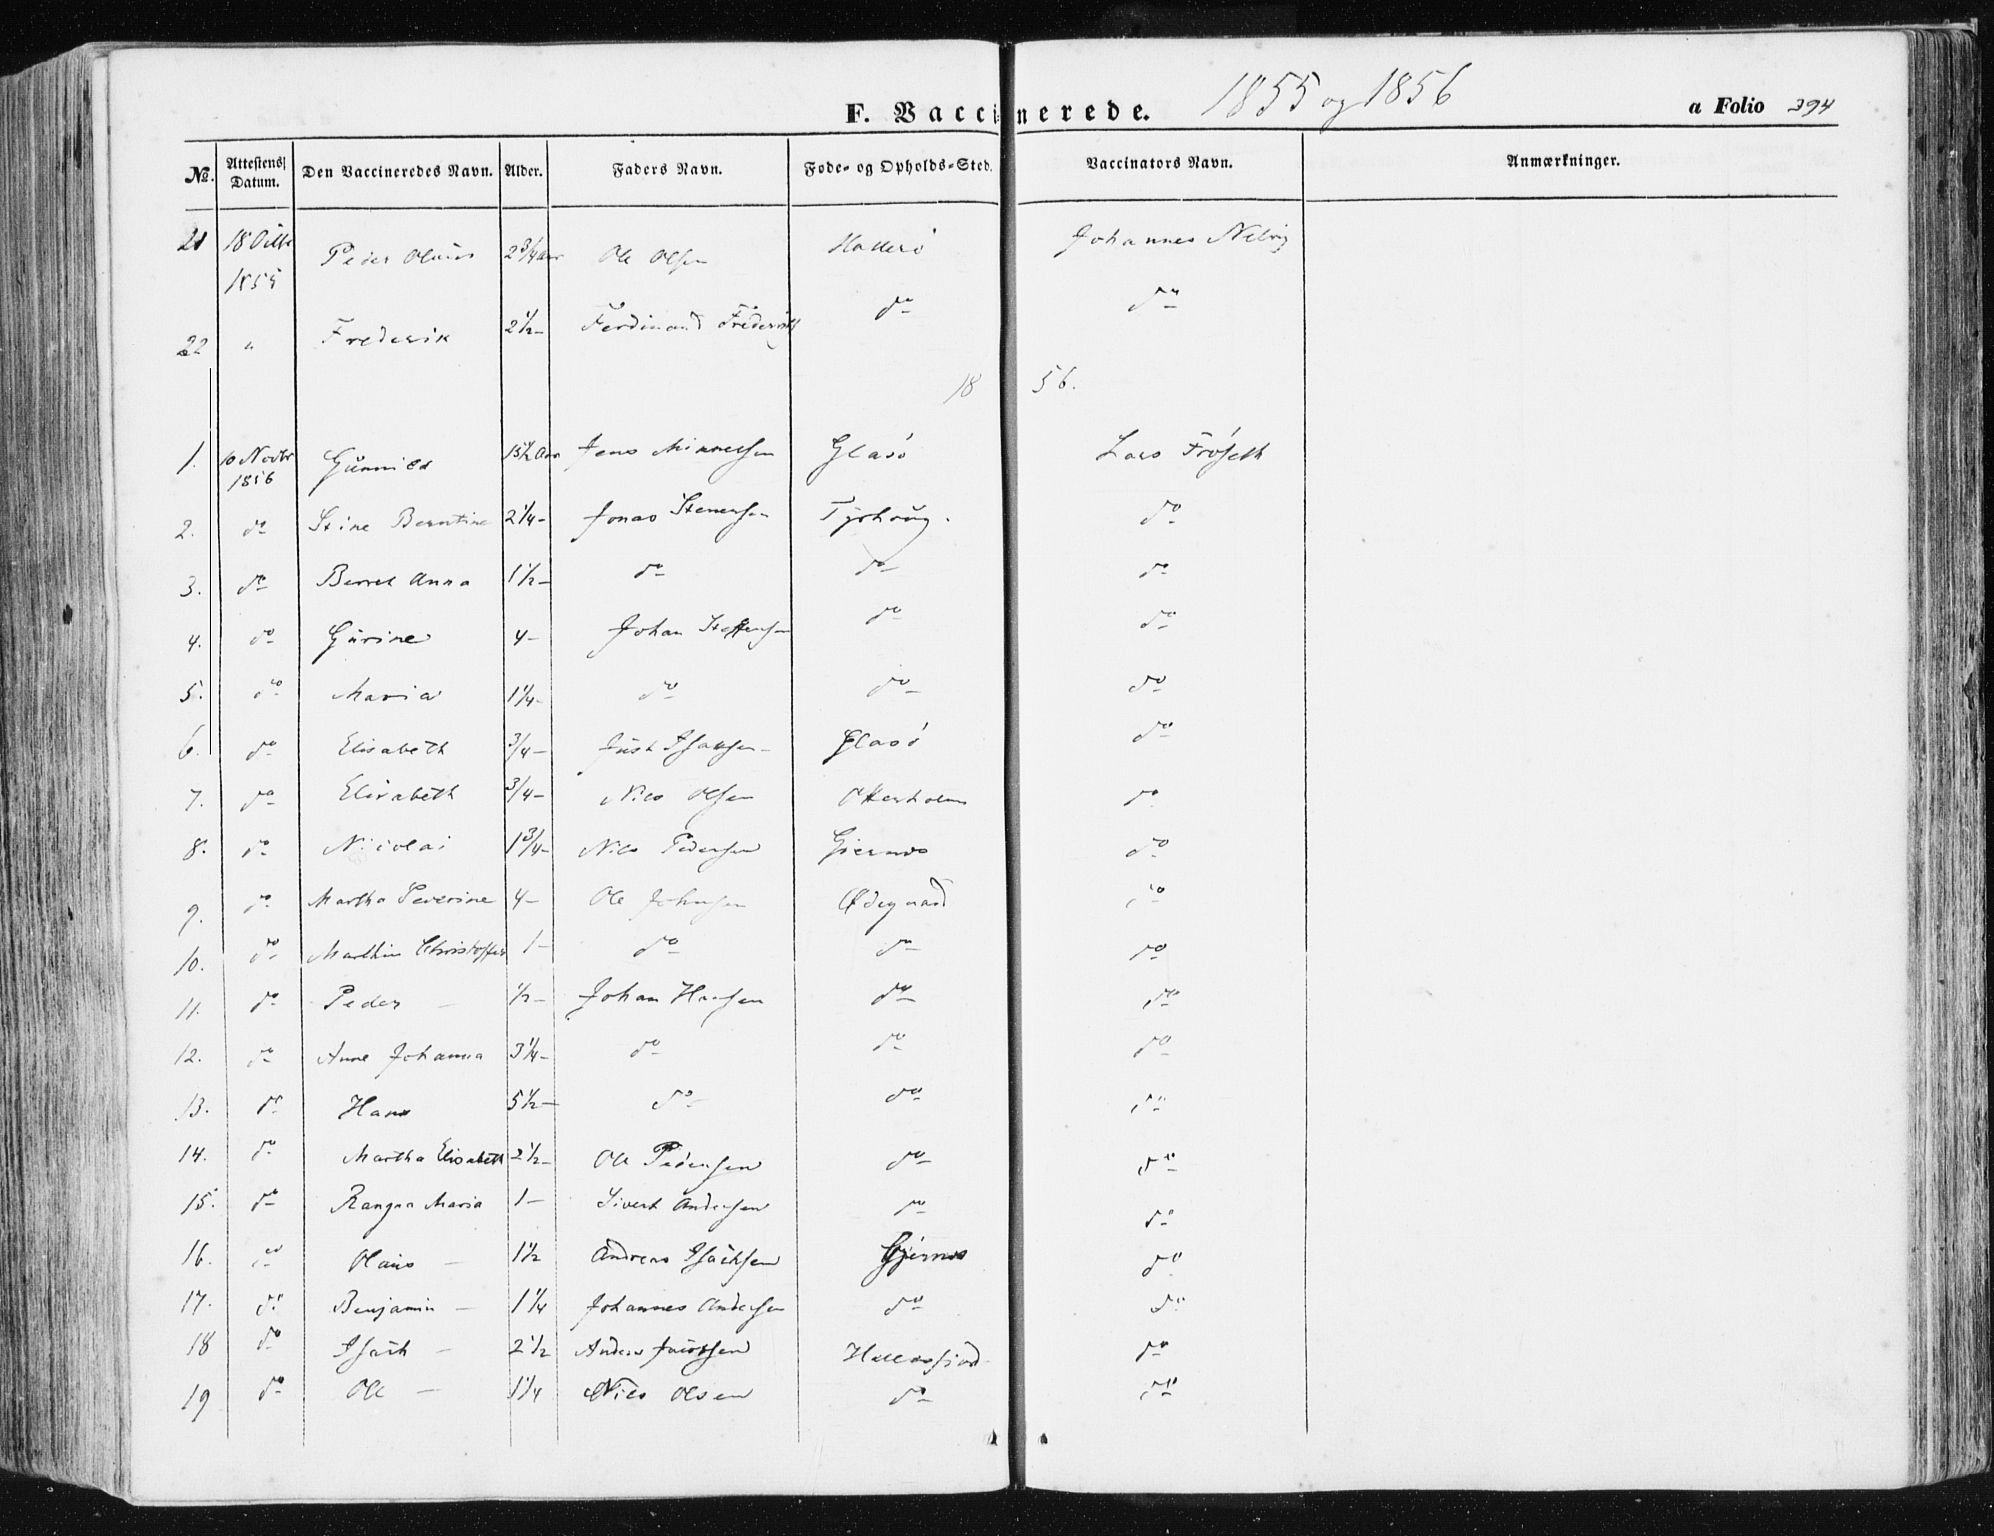 F. Vaccinerede. 1855 og 1856 a Folio 394
No. Attestens Datum. Den Vaccineredes Navn. Alder. Faders Navn. Føde- og Opholds-Sted. Vaccinators Navn. Anmærkninger.
21 18 Octbr 1855 Peder Olaus 2 3/4 aar Ole Olsen Johannes
22 " Frederik 2 1/2 - Ferdinand do do
1856.
1. 10 Novbr 1856 Gunnild Jens Glasø Lars Frøseth
2. do Stine Berntine 2 1/4 - Jonas Tyrhoug. do
3. do Berret Anna 1 1/2 - do do do
4. do Gurine 4 - Johan Steffensen do do
5. do Maria 1 1/4 - do do do
6. do Elisabeth 3/4 - Just Glasø do
7. do Elisabeth 3/4 - Nils Olsen Otterholm do
8. do Nicolai 1 3/4 - Nils Pedersen do
9. do Martha Severine 4 - Ole Johnsen Ødegaard do
10. do Marthin Christoffer 1 - do do do
11. do Peder - 1/2 - Johan Hansen do do
12. do Anne Johanna 3 1/4 - do do do
13. do Hans 5 1/2 - do do do
14. do Martha Elisabeth 2 1/2 - Ole Pedersen do do
15. do Maria 1 - Sivert Andersen do do
16. do Olaus - 1 1/2 Andreas Isachsen do
17. do Benjamin - 1 1/4 Johannes Andersen do do
18 do Isach - 2 1/2 Anders do
19 do Ole - 1 1/4 Nils Olsen do do